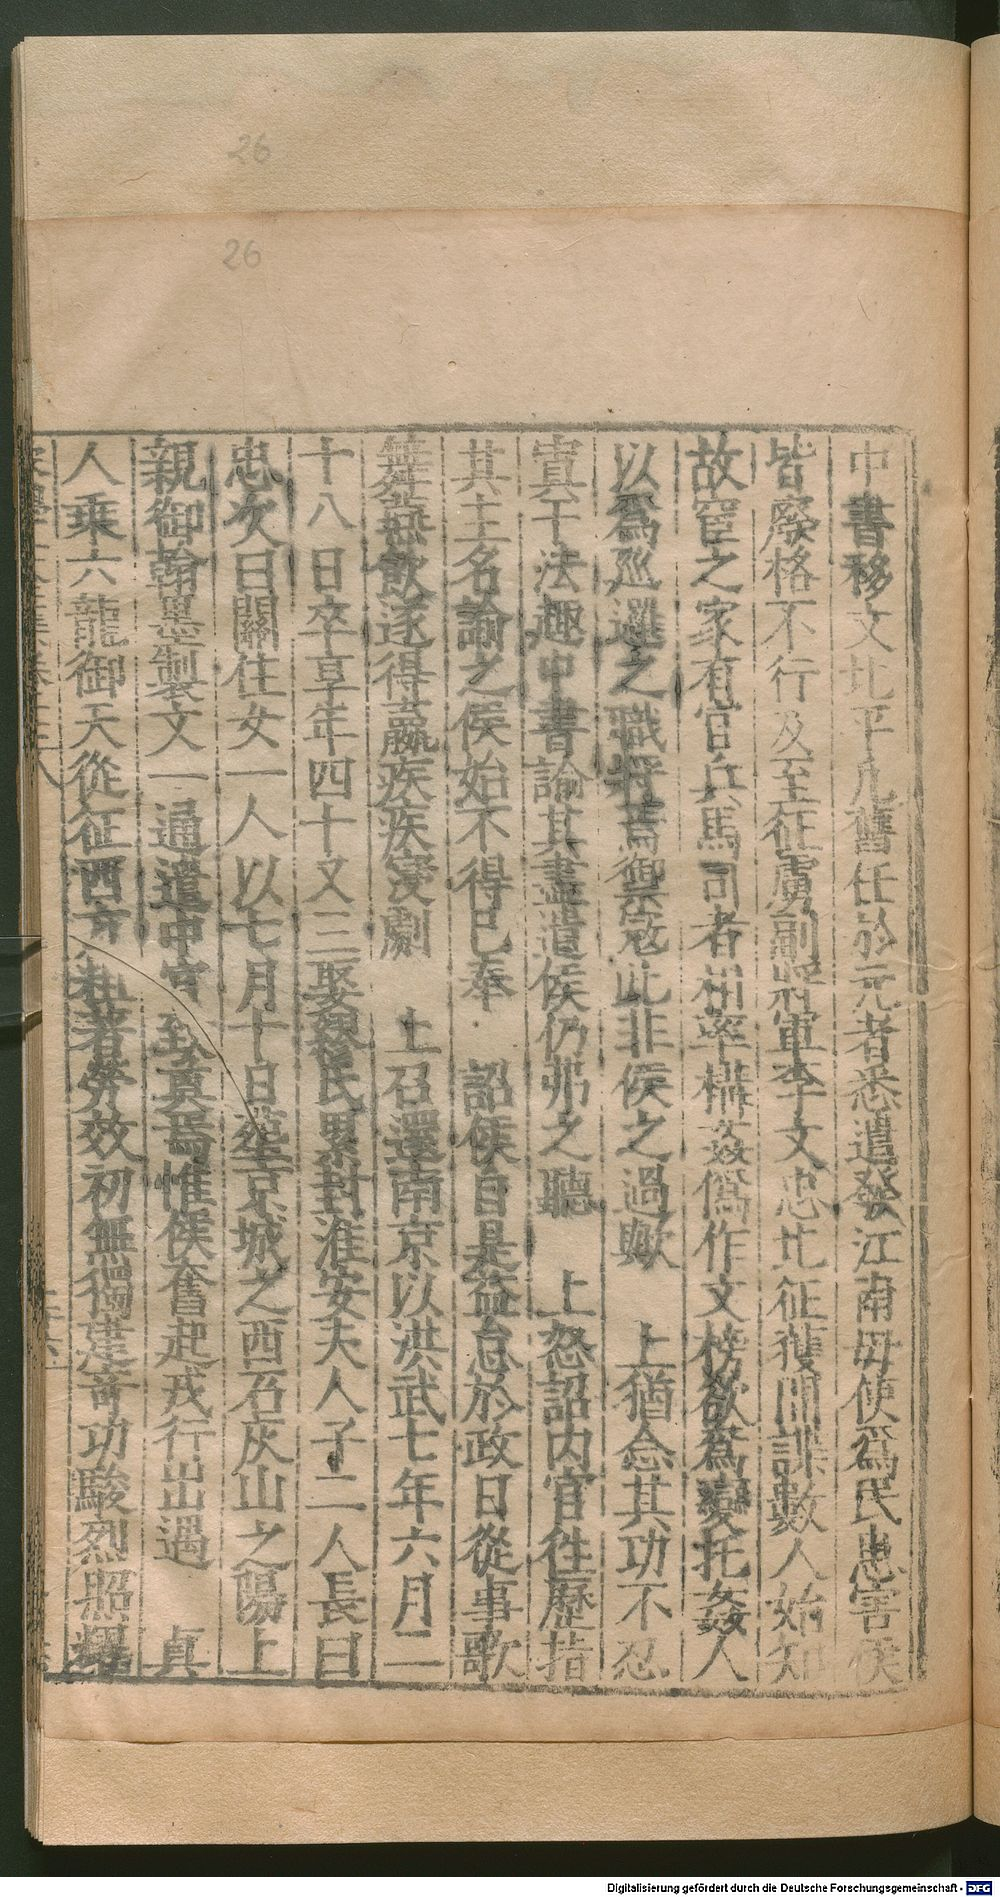 26
26
中書移文北平凡舊任於元者悉遣發江南毋使為民患害侯
皆廢格不行及至征虜副將軍李文忠北征獲間諜數人始知
故官之家有官兵馬司者相率構姦僞作文榜欲爲變托姦人
以爲廵邏之職將焉禦寇此非侯之過歟　上猶念其功不忍
寘于法趣中書諭其盡遣侯仍弗之聽　上怒詔內官徃歷指
其主名諭之侯始不得已奉　詔侯自是益怠於政日從事歌
舞燕飲遂得羸疾疾寖劇　上召還南京以洪武七年六月二
十八日卒享年四十又三娶魏氏累封淮安夫人子二人長曰
忠次曰關住女一人以七月十日塟京城之西石灰山之陽上
親御翰墨製文一通遣中官　致奠焉惟侯奮起戎行出遇　眞
人乗六龍御天從征西京粗著勞效初無獨建奇功駿烈照耀
Digitalisierung gefördert durch die Deutsche Forschungsgemeinschaft - DFG